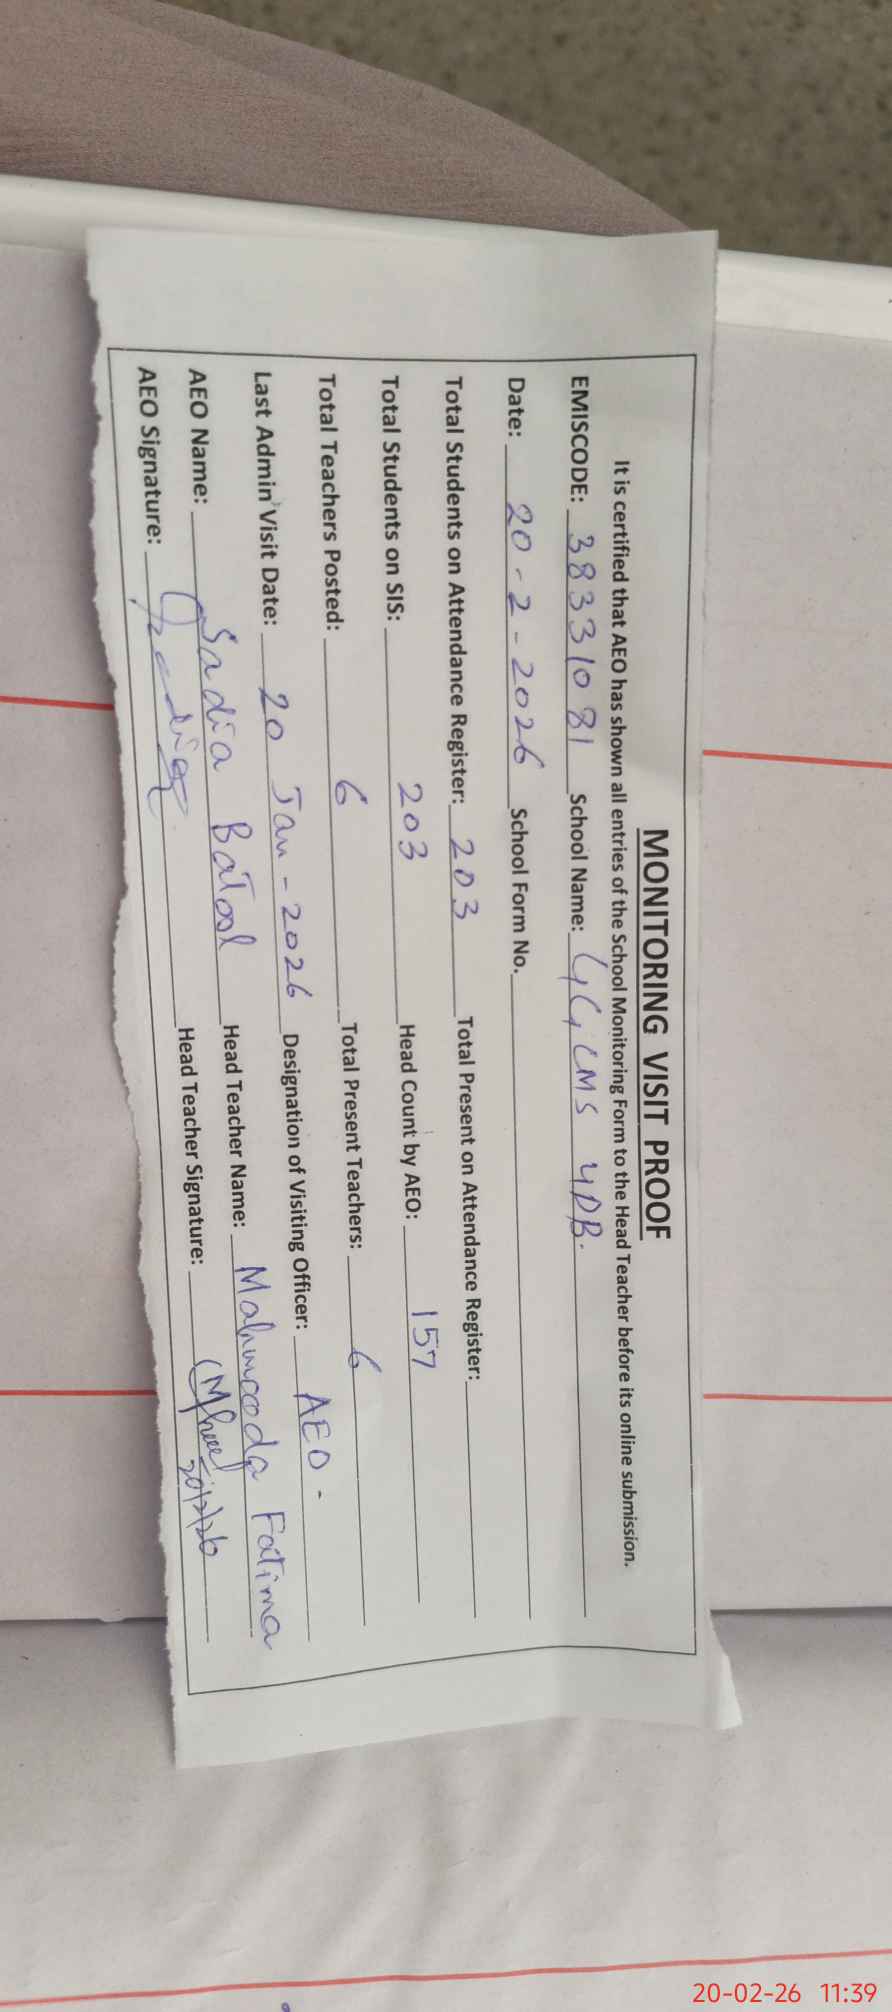 MONITORING VISIT PROOF
It is certified that AEO has shown all entries of the School Monitoring Form to the Head Teacher before its online submission.
EMISCODE: 38331081 School Name: GGCMS 4DB.
Date: 20-2-2026 School Form No.
Total Students on Attendance Register: 203 Total Present on Attendance Register:
Total Students on SIS: 203 Head Count by AEO: 157
Total Teachers Posted: 6 Total Present Teachers: 6
Last Admin Visit Date: 20 Jan-2026 Designation of Visiting Officer: AEO-
AEO Name: Sadia Batool Head Teacher Name: Mahmooda Fatima
AEO Signature: Head Teacher Signature: 20/2/26
20-02-26 11:39